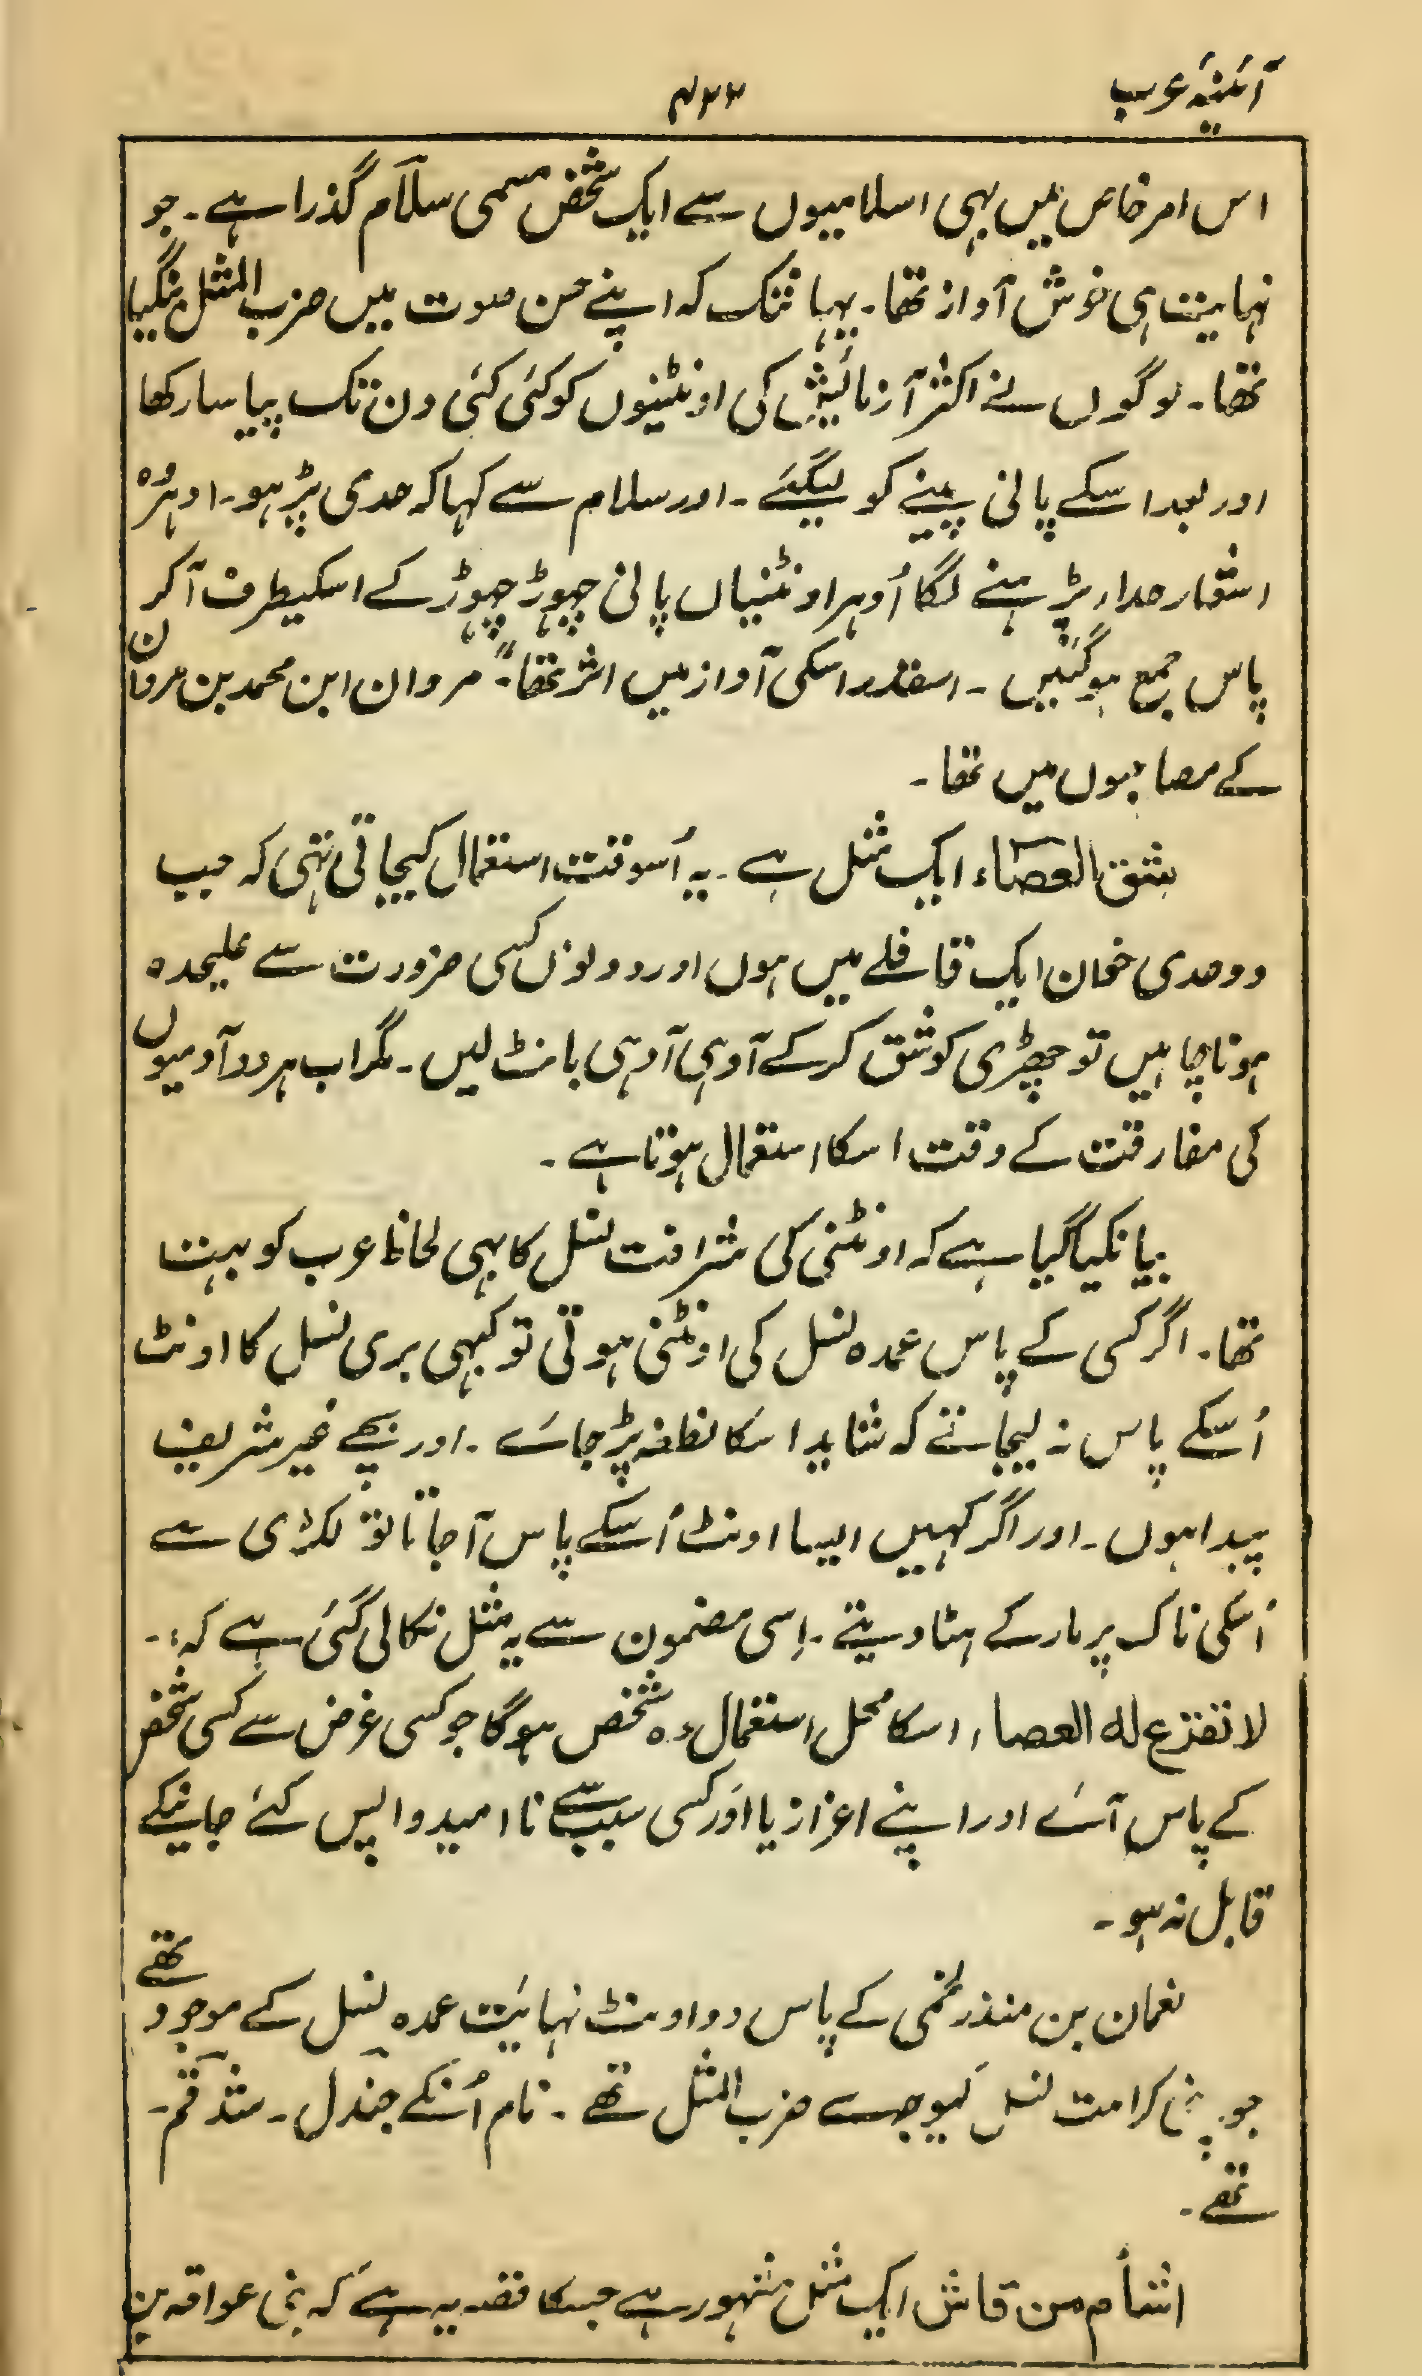 آئینۂ عرب
۴۳۳
اس امر خاص میں بہی اسلامیوں سے ایک شخص مسمی سلّام گذرا ہے ۔ جو
نہایت ہی خوش آواز تھا ۔ یہانتک کہ اپنے حسن صوت میں ضرب المثل بنگیا
تھا ۔ لوگوں نے اکثر آزمائیش کی اونٹنیوں کو کئی کئی دن تک پیاسا رکھا
اور بعد اسکے پانی پینے کو لیگئے ۔ اور سلام سے کہا کہ حدی پڑہو ۔ اوہرُہ
اشعار حداء پڑہنے لگا اُوہر اونٹنیاں پانی چہوڑ چہوڑ کے اسکیطرف آ کر
پاس جمع ہوگئیں ۔ اسقدر اسکی آواز میں اثر تھا ۔ مروان ابن محمد بن مروان
کے مصاحبوں میں تھا ۔
شق العصاء ایک مثل ہے ۔ یہ اُسوقت استعمال کیجاتی تہی کہ جب
دو حدی خوان ایک قافلے میں ہوں اور دونوں کسی ضرورت سے علیحدہ
ہونا چاہیں تو چھڑی کو شق کر کے آدہی آدہی بانٹ لیں ۔ مگر اب ہر دو آدمیوں
کی مفارقت کے وقت اسکا استعمال ہوتا ہے ۔
بیانکیا گیا ہے کہ اونٹنی کی شرافت نسل کا بہی لحاظ عرب کو بہت
تھا ۔ اگر کسی کے پاس عمدہ نسل کی اونٹنی ہوتی تو کبہی بری نسل کا اونٹ
اُسکے پاس نہ لیجاتے کہ شاید اسکا نطفہ پڑ جائے ۔ اور بچے غیر شریف
پیدا ہوں ۔ اور اگر کہیں ایسا اونٹ اُسکے پاس آ جاتا تو لکڑی سے
اُسکی ناک پر مار کے ہٹا دیتے ۔ اِسی مضمون سے یہ مثل نکالی گئی ہے کہ :-
لا تقرع له العصاء اسکا محل استعمال وہ شخص ہوگا جو کسی غرض سے کسی شخص
کے پاس آئے اور اپنے اعزاز یا اَور کسی سبب سے نا امید واپس کئے جانیکے
قابل نہ ہو ۔
نعمان بن منذر لخمی کے پاس دو اونٹ نہایت عمدہ نسل کے موجود تھے
جو کرامت نسل کیوجہ سے ضرب المثل تھے ۔ نام اُنکے جندل ۔ شدقم ۔
تھے ۔
اشأم من قاش ایک مثل مشہور ہے جسکا قصہ یہ ہے کہ بنی عوافہ بن